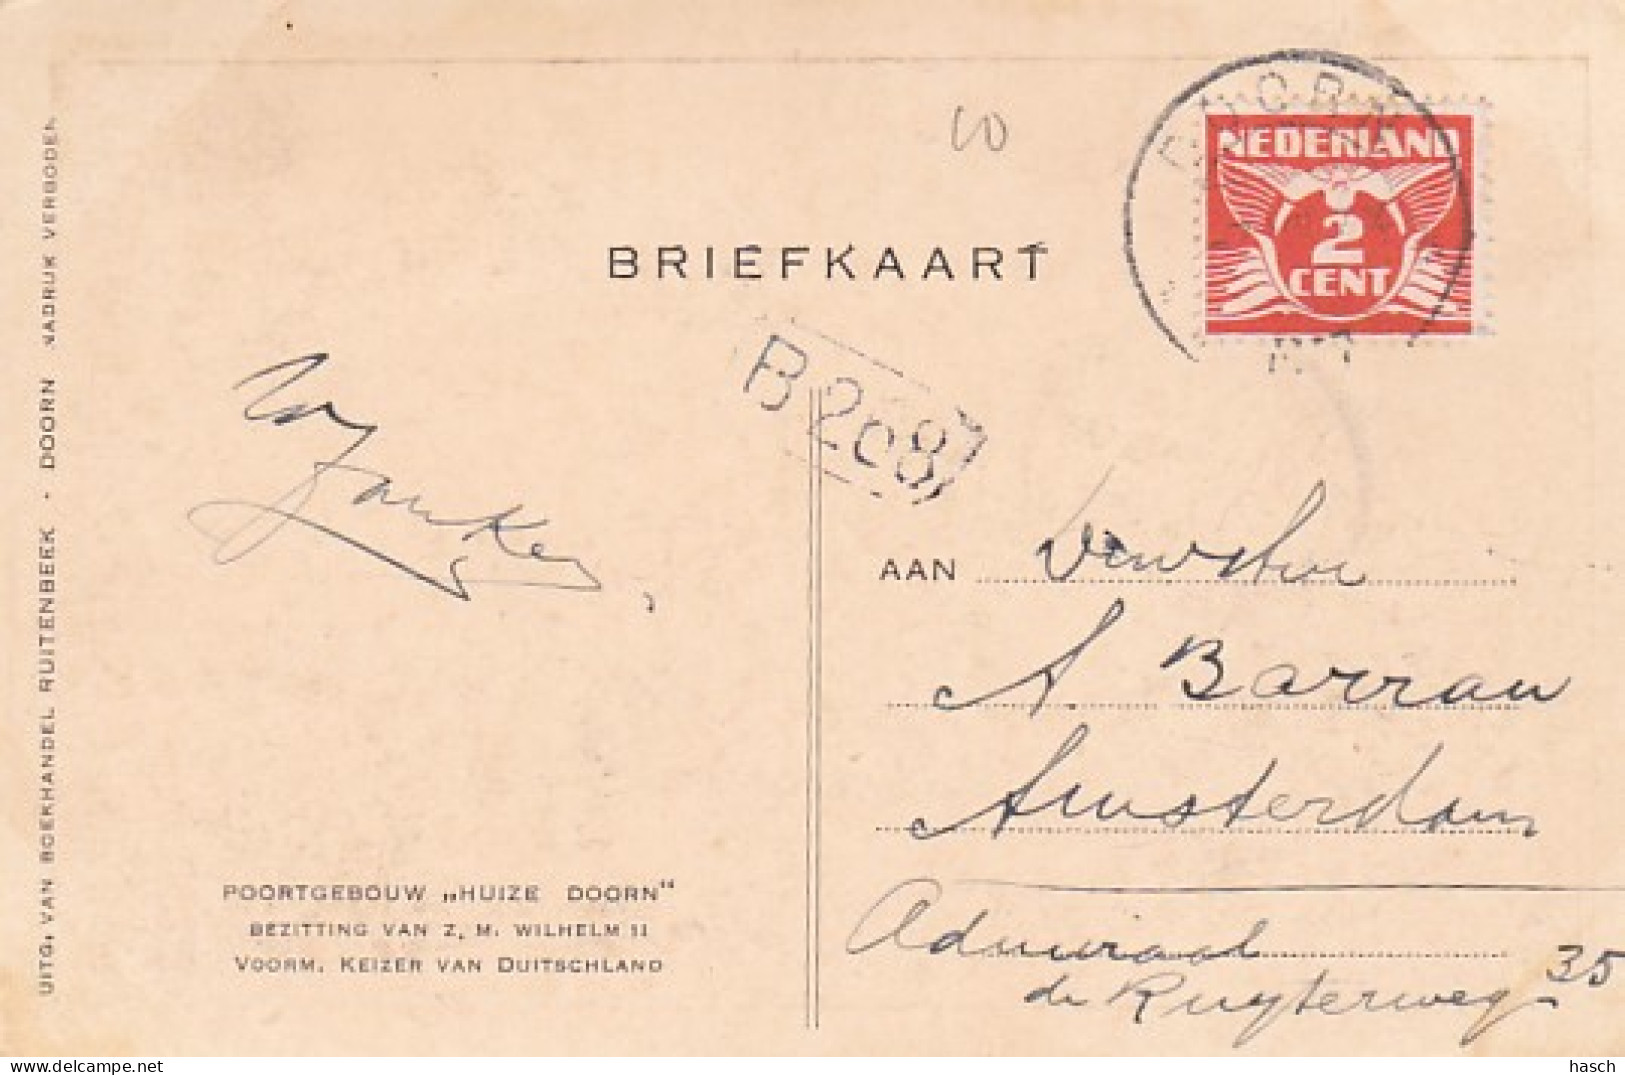 10
DOORN
NEDERLAND
2
CENT
BRIEFKAART
B 208
AAN
A. Barrau
Amsterdam
Admiraal
de Ruyterweg 35
POORTGEBOUW „HUIZE DOORN"
BEZITTING VAN Z. M. WILHELM II
VOORM. KEIZER VAN DUITSCHLAND
UITG. VAN BOEKHANDEL RUITENBEEK · DOORN NADRUK VERBODEN
hasch